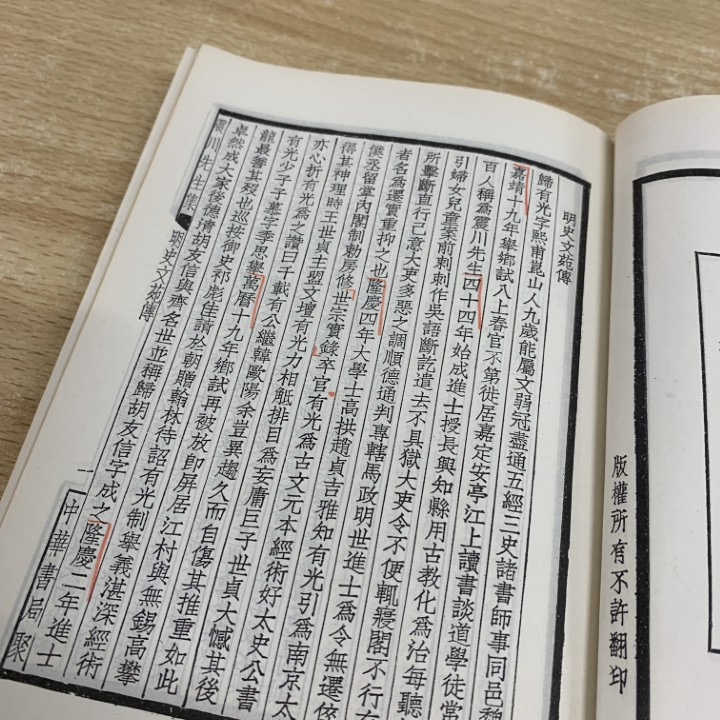 明史文苑傳
歸有光字熙甫崑山人九歲能屬文弱冠盡通五經三史諸書師事同邑魏
嘉靖十九年舉鄉試八上春官不第徙居嘉定安亭江上讀書談道學徒常
百人稱為震川先生四十四年始成進士授長興知縣用古教化為治每聽
引婦女兒童案前刺刺作吳語斷訖遣去不具獄大吏令不便輒寢閣不行有
所擊斷直行己意大吏多惡之調順德通判專轄馬政明世進士為令無遷倅
者名為遷實重抑之也隆慶四年大學士高拱趙貞吉雅知有光引為南京太
僕丞留掌內閣制勅房修世宗實錄卒官有光為古文元本經術好太史公書
得其神理時王世貞主盟文壇有光力相觝排目為妄庸巨子世貞大憾其後
亦心折有光為之讚曰千載有公繼韓歐陽余豈異趨久而自傷其推重如此
有光少子子慕字季思舉萬曆十九年鄉試再被放即屏居江村與無錫高攀
龍最善其歿也巡按御史祁彪佳請於朝贈翰林待詔有光制舉義湛深經術
卓然成大家後德清胡友信與齊名世並稱歸胡友信字成之隆慶二年進士
震川先生集 明史文苑傳 一 中華書局聚
版權所有不許翻印